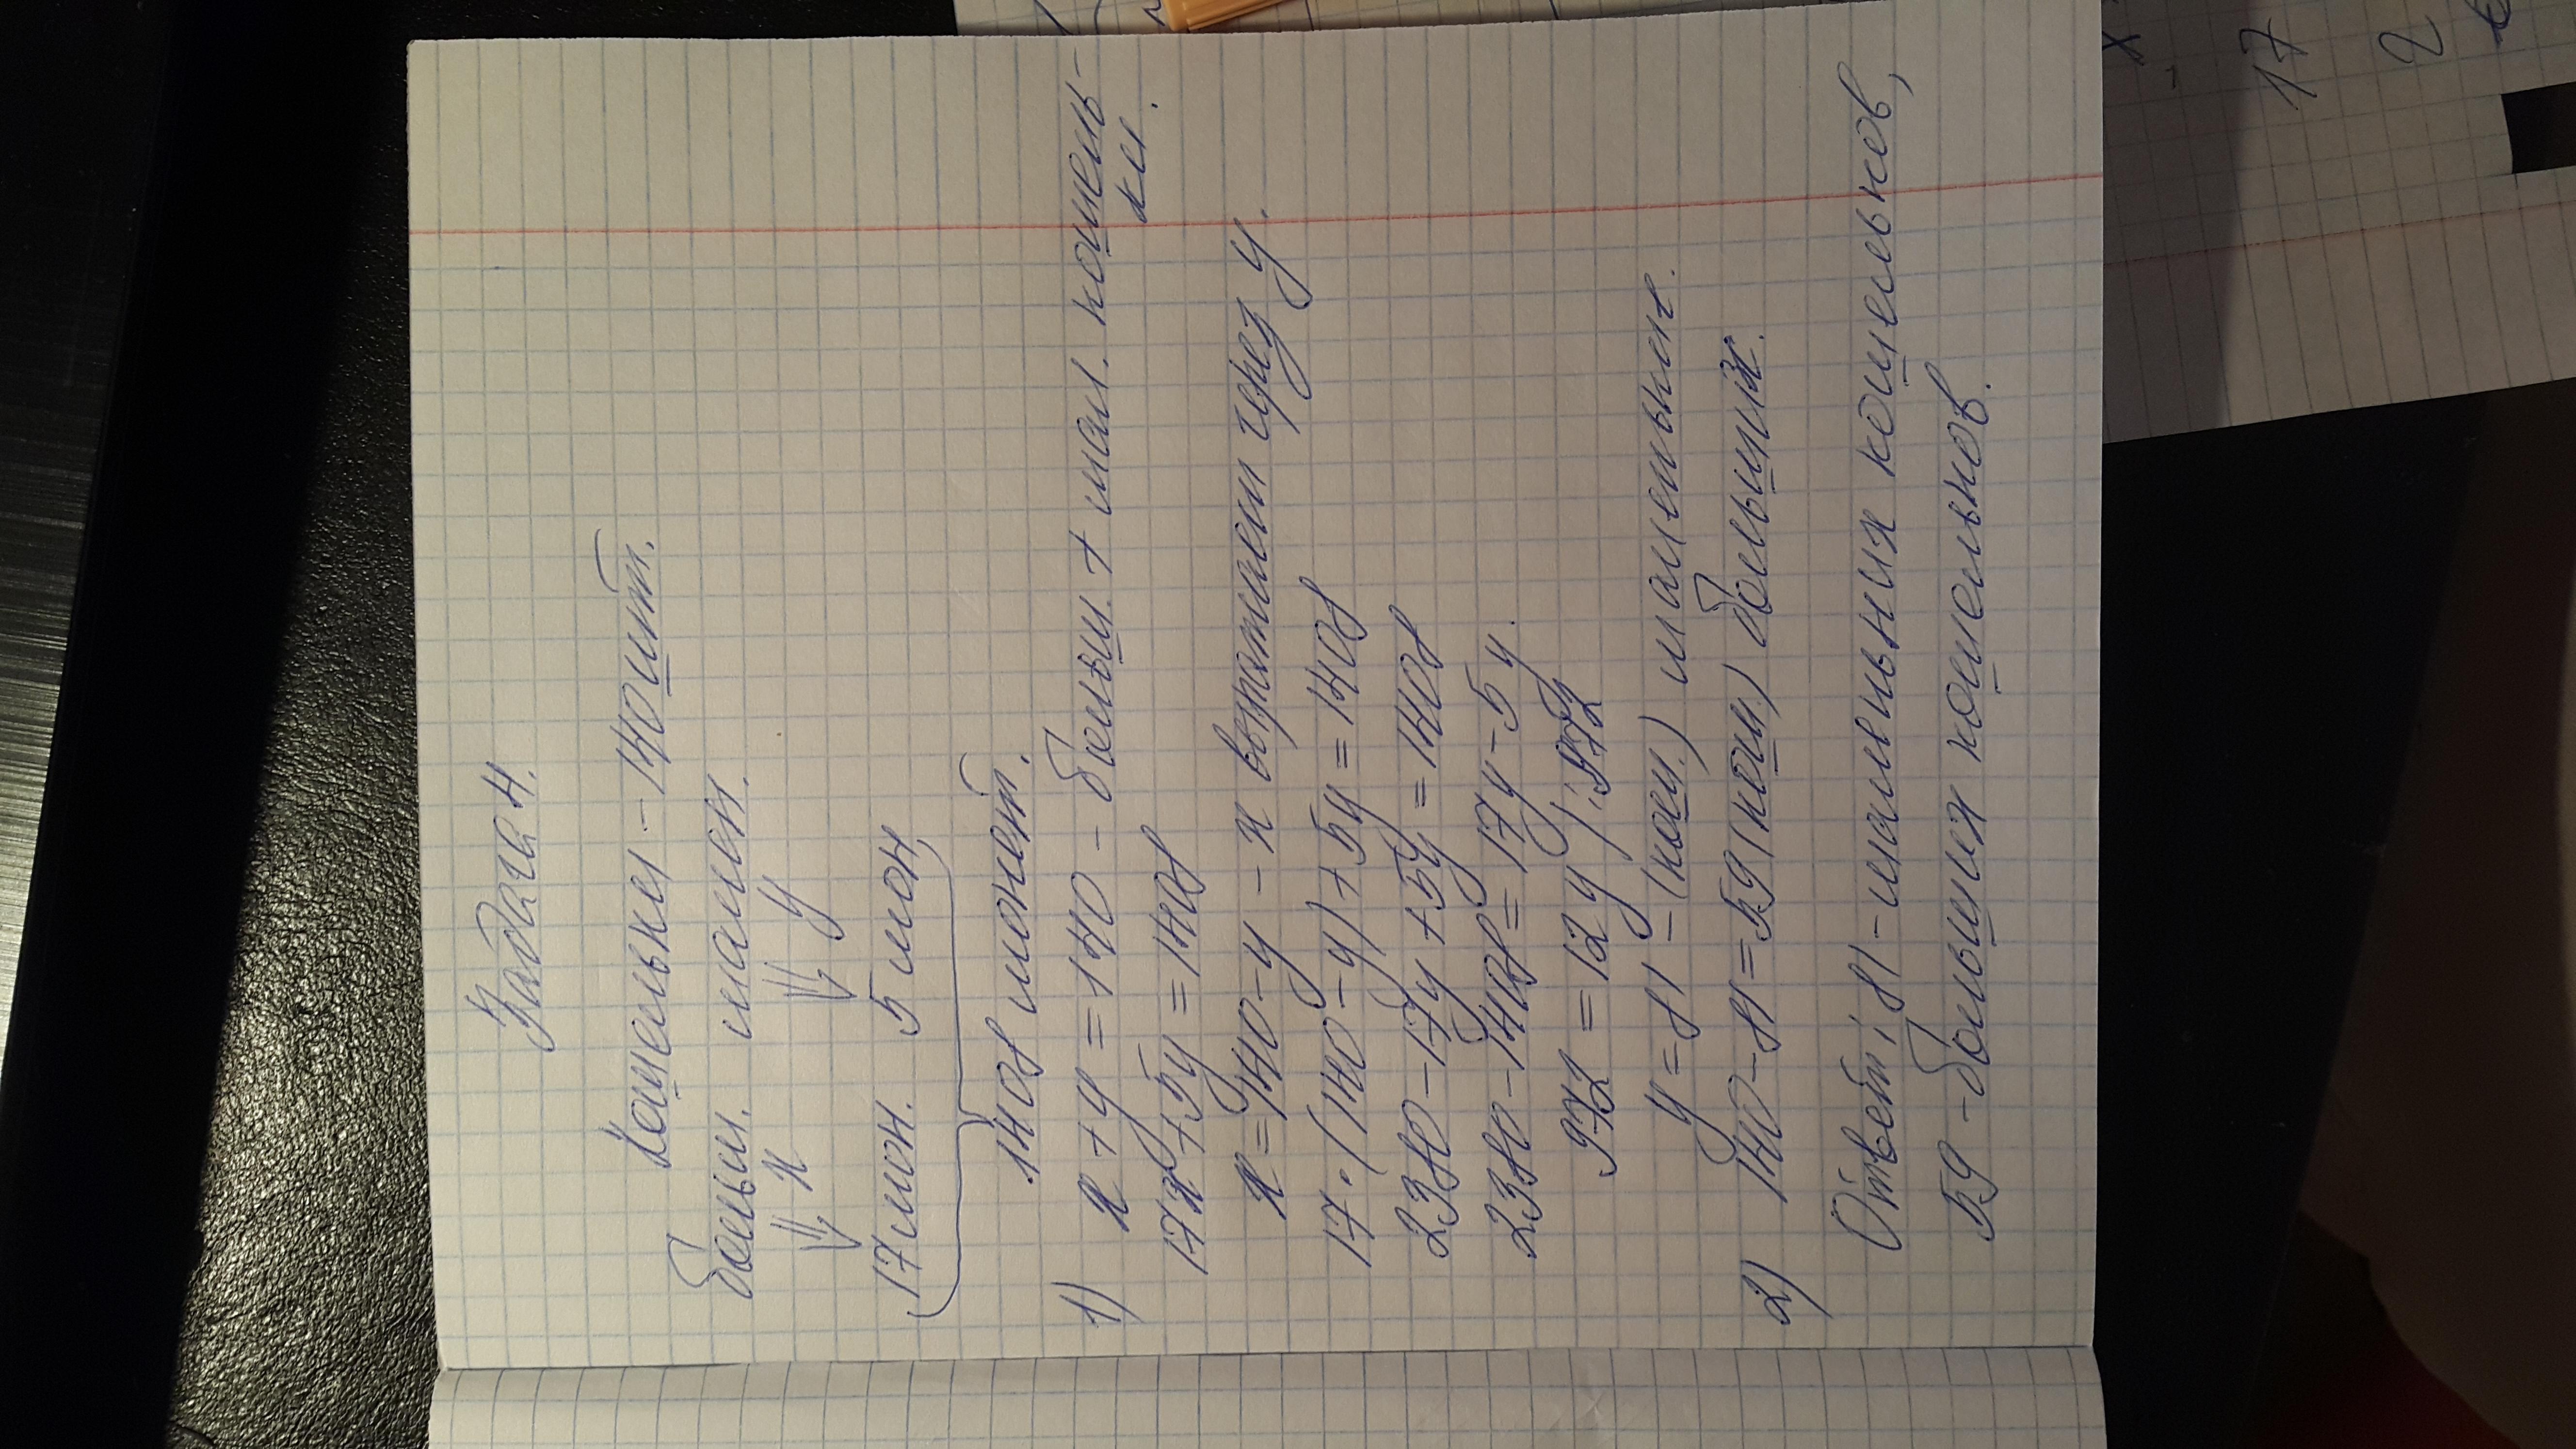 Задача 4.
Кошельки - 140 шт.
больш. мален.
⇓ x ⇓ y
17 мон. 5 мон,
1408 монет.
1) x + y = 140 - больш. + мал. кошель-
ки.
17x + 5y = 1408
x = 140 - y - x выражаем через y.
17 · (140 - y) + 5y = 1408
2380 - 17y + 5y = 1408
2380 - 1408 = 17y - 5y.
972 = 12y | :
y = 81 - (кош.) маленькие.
2) 140 - 81 = 59 (кош.) больших.
Ответ: 81 - маленьких кошельков,
59 - больших кошельков.
17
2